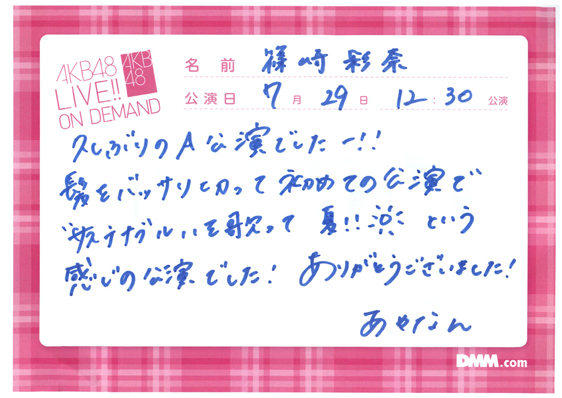 AKB48
LIVE!!
ON DEMAND
AKB
48
名前 篠崎 彩奈
公演日 7月 29日 12:30 公演
久しぶりのA公演でしたー!!
髪をバッサリ切って初めての公演で
"サステナブル"を歌って 夏!! という
感じの公演でした! ありがとうございました!
あやなん
DMM.com